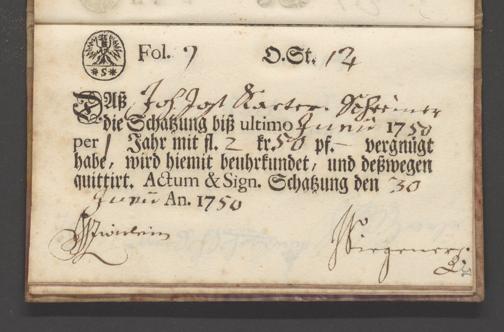 *S*
Fol. 9 O.St. 12
Daß Joh Jost
die Schatzung biß ultimo Junii 1750
per 1 Jahr mit fl. 2 kr. 50 pf. – vergnügt
habe, wird hiemit beuhrkundet, und deßwegen
quittirt. Actum & Sign. Schatzung den 30
Junii An. 1750